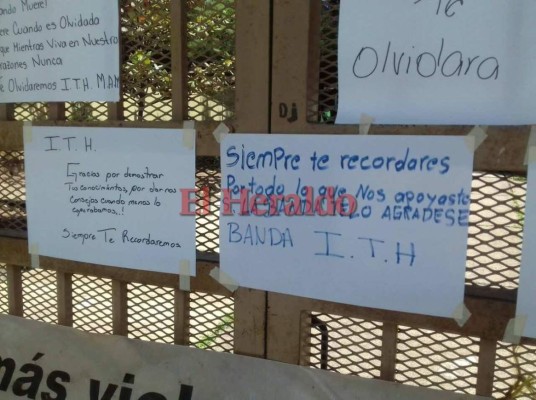 Muere!
Cuando es Olvidado
que Mientras Viva en Nuestro
razones Nunca
Olvidaremos I.T.H. MAM
Te
olvidara
Dj
I.T.H.
Gracias por demostrar
Tus conocimientos, por darnos
Consejos cuando menos lo
esperabamos..!
Siempre Te Recordaremos
Siempre te recordares
Por todo lo que Nos apoyaste
LA BANDA TE LO AGRADESE
BANDA I.T.H
El Heraldo
más viol